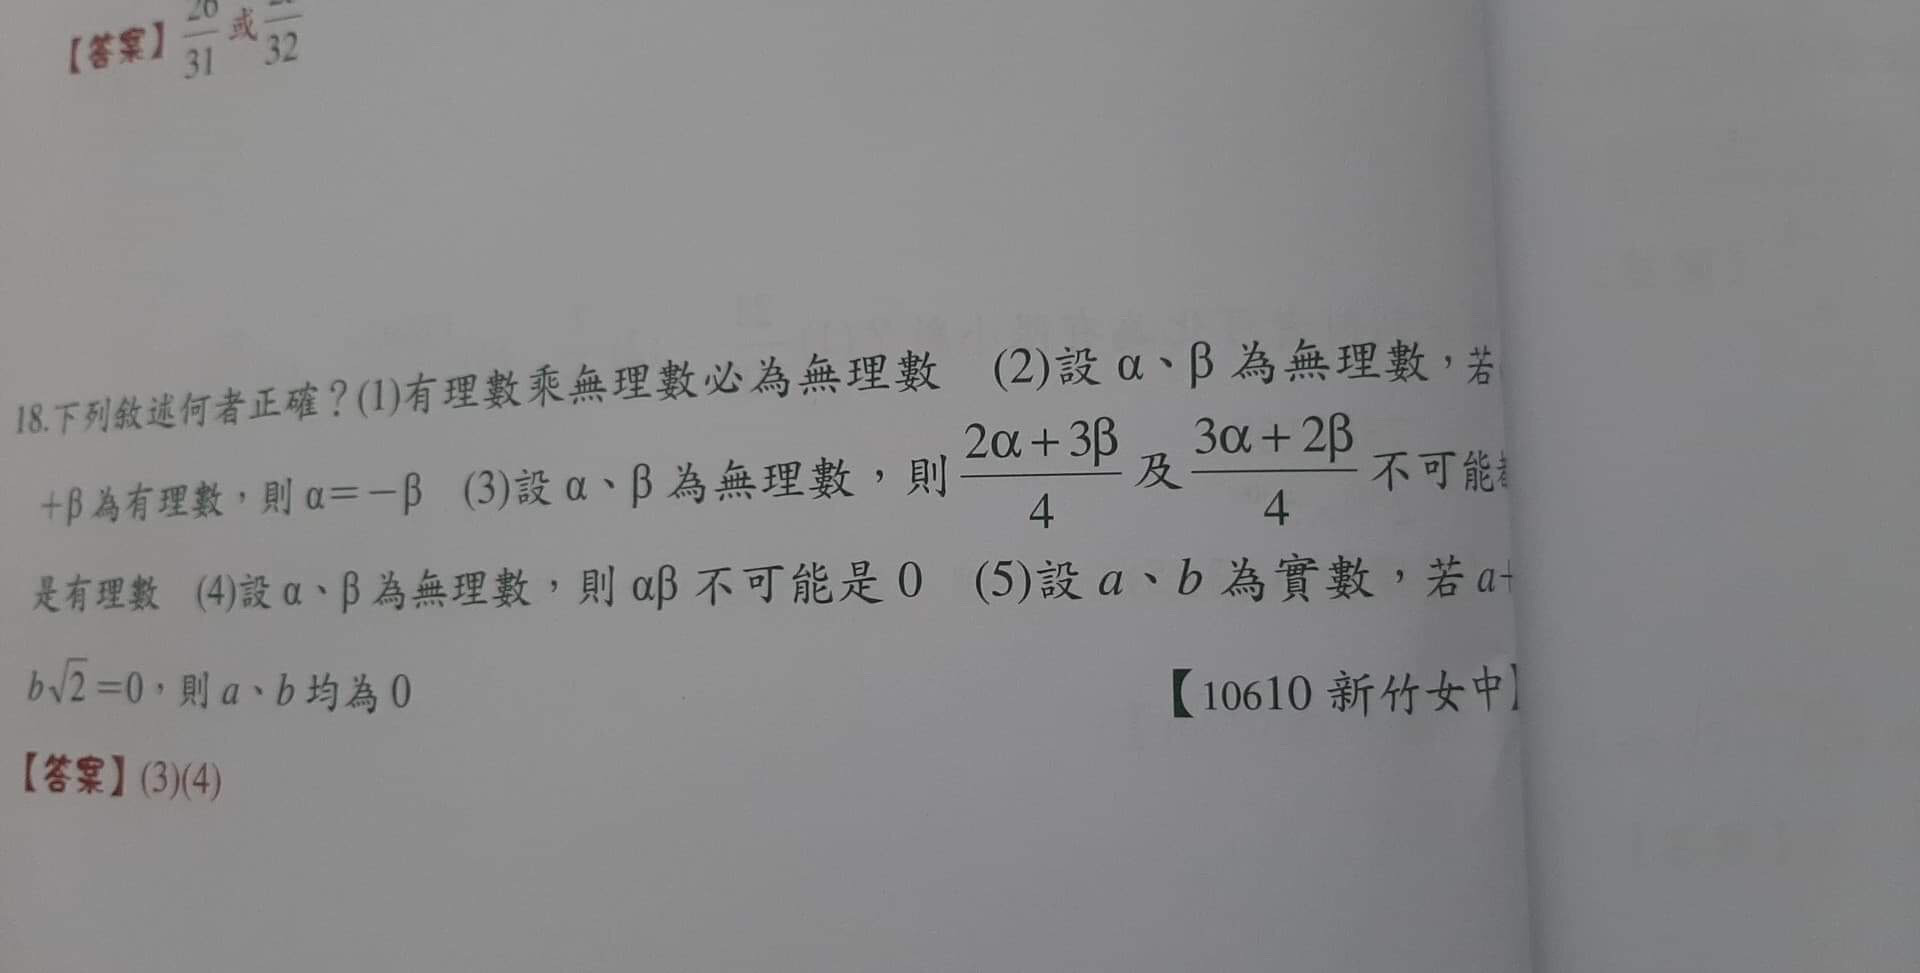 【答案】26/31 或 /32
18.下列敘述何者正確？(1)有理數乘無理數必為無理數 (2)設 α、β 為無理數，若
+β 為有理數，則 α=−β (3)設 α、β 為無理數，則 (2α+3β)/4 及 (3α+2β)/4 不可能
是有理數 (4)設 α、β 為無理數，則 αβ 不可能是 0 (5)設 a、b 為實數，若 a+
b√2=0，則 a、b 均為 0
【10610 新竹女中】
【答案】(3)(4)